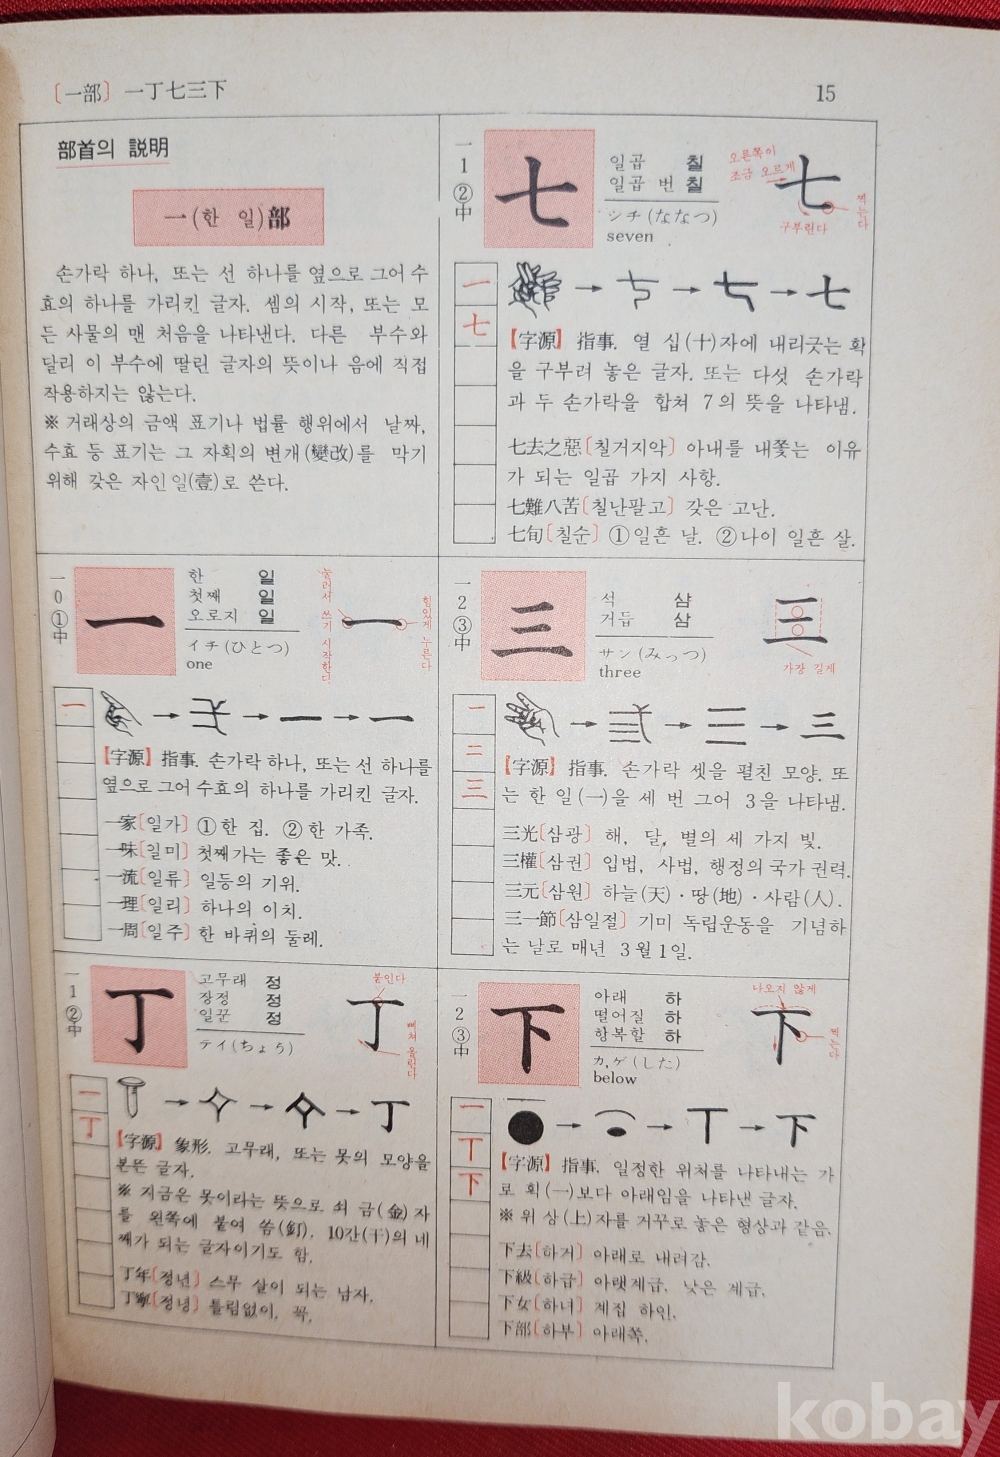 〔一部〕 一丁七三下
15
部首의 說明
一(한 일)部
손가락 하나, 또는 선 하나를 옆으로 그어 수
효의 하나를 가리킨 글자. 셈의 시작, 또는 모
든 사물의 맨 처음을 나타낸다. 다른 부수와
달리 이 부수에 딸린 글자의 뜻이나 음에 직접
작용하지는 않는다.
※ 거래상의 금액 표기나 법률 행위에서 날짜,
수효 등 표기는 그 자획의 변개(變改)를 막기
위해 갖은 자인 일(壹)로 쓴다.
一
0
①
中
一
한 일
첫째 일
오로지 일
イチ(ひとつ)
one
눌러서 쓰기 시작한다
一
힘있게 누른다
一
→ → 一 → 一
【字源】 指事. 손가락 하나, 또는 선 하나를
옆으로 그어 수효의 하나를 가리킨 글자.
一家〔일가〕 ①한 집. ②한 가족.
一味〔일미〕 첫째가는 좋은 맛.
一流〔일류〕 일등의 기위.
一理〔일리〕 하나의 이치.
一周〔일주〕 한 바퀴의 둘레.
一
1
②
中
丁
고무래 정
장정 정
일꾼 정
テイ(ちょう)
붙인다
丁
삐쳐 올린다
一
丁
→ → → 丁
【字源】 象形. 고무래, 또는 못의 모양을
본뜬 글자.
※ 지금은 못이라는 뜻으로 쇠 금(金)자
를 왼쪽에 붙여 쓰(釘), 10간(干)의 네
째가 되는 글자이기도 함.
丁年〔정년〕 스무 살이 되는 남자.
丁寧〔정녕〕 틀림없이, 꼭.
一
1
②
中
七
일곱 칠
일곱 번 칠
シチ(ななつ)
seven
오른쪽이
조금 오르게
七
꺾는다
구부린다
一
七
→ → → 七
【字源】 指事. 열 십(十)자에 내리긋는 확
을 구부려 놓은 글자. 또는 다섯 손가락
과 두 손가락을 합쳐 7의 뜻을 나타냄.
七去之惡〔칠거지악〕 아내를 내쫓는 이유
가 되는 일곱 가지 사항.
七難八苦〔칠난팔고〕 갖은 고난.
七旬〔칠순〕 ①일흔 날. ②나이 일흔 살.
一
2
③
中
三
석 삼
거듭 삼
サン(みっつ)
three
三
가장 길게
一
二
三
→ → 三 → 三
【字源】 指事. 손가락 셋을 펼친 모양. 또
는 한 일(一)을 세 번 그어 3을 나타냄.
三光〔삼광〕 해, 달, 별의 세 가지 빛.
三權〔삼권〕 입법, 사법, 행정의 국가 권력.
三元〔삼원〕 하늘(天)·땅(地)·사람(人).
三一節〔삼일절〕 기미 독립운동을 기념하
는 날로 매년 3월 1일.
一
2
③
中
下
아래 하
떨어질 하
항복할 하
カ,ゲ(した)
below
나오지 않게
下
찍는다
一
丁
下
→ → → 下
【字源】 指事. 일정한 위치를 나타내는 가
로 획(一)보다 아래임을 나타낸 글자.
※ 위 상(上)자를 거꾸로 놓은 형상과 같음.
下去〔하거〕 아래로 내려감.
下級〔하급〕 아랫계급. 낮은 계급.
下女〔하녀〕 계집 하인.
下部〔하부〕 아래쪽.
kobay